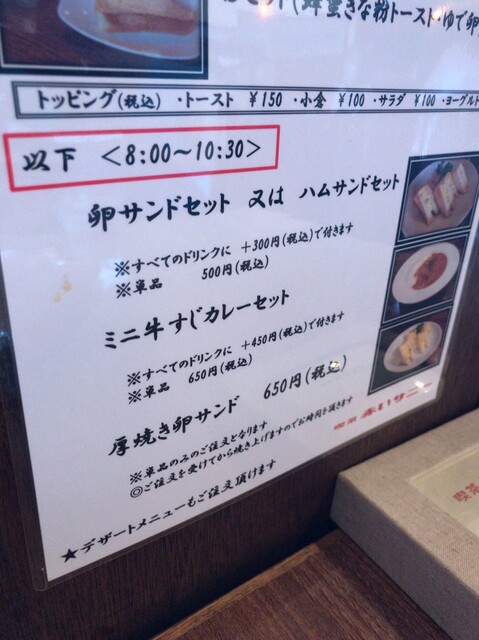 トッピング(税込) ・トースト ¥150 ・小倉 ¥100 ・サラダ ¥100 ・ヨーグルト
以下 <8:00～10:30>
卵サンドセット 又は ハムサンドセット
※すべてのドリンクに +300円(税込)で付きます
※単品 500円(税込)
ミニ牛すじカレーセット
※すべてのドリンクに +450円(税込)で付きます
※単品 650円(税込)
厚焼き卵サンド 650円(税込)
※単品のみのご注文となります
◎ご注文を受けてから焼き上げますのでお時間を頂きます
喫茶 赤いサニー
★デザートメニューもご注文頂けます
喫茶